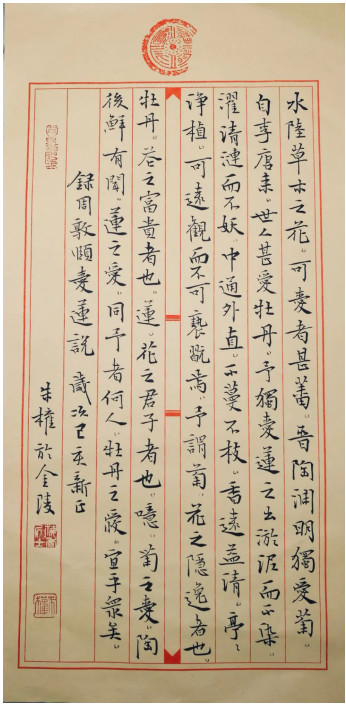 水陸草木之花。可愛者甚蕃。晉陶淵明獨愛菊。
自李唐来。世人甚愛牡丹。予獨愛蓮之出淤泥而不染。
濯清漣而不妖。中通外直。不蔓不枝。香遠益清。亭々
淨植。可遠觀而不可褻翫焉。予謂菊。花之隱逸者也。
牡丹。花之富貴者也。蓮。花之君子者也。噫。菊之愛。陶
後鮮有聞。蓮之愛。同予者何人。牡丹之愛。宜乎眾矣。
録周敦頤愛蓮說 歲次己亥新正
朱權於金陵